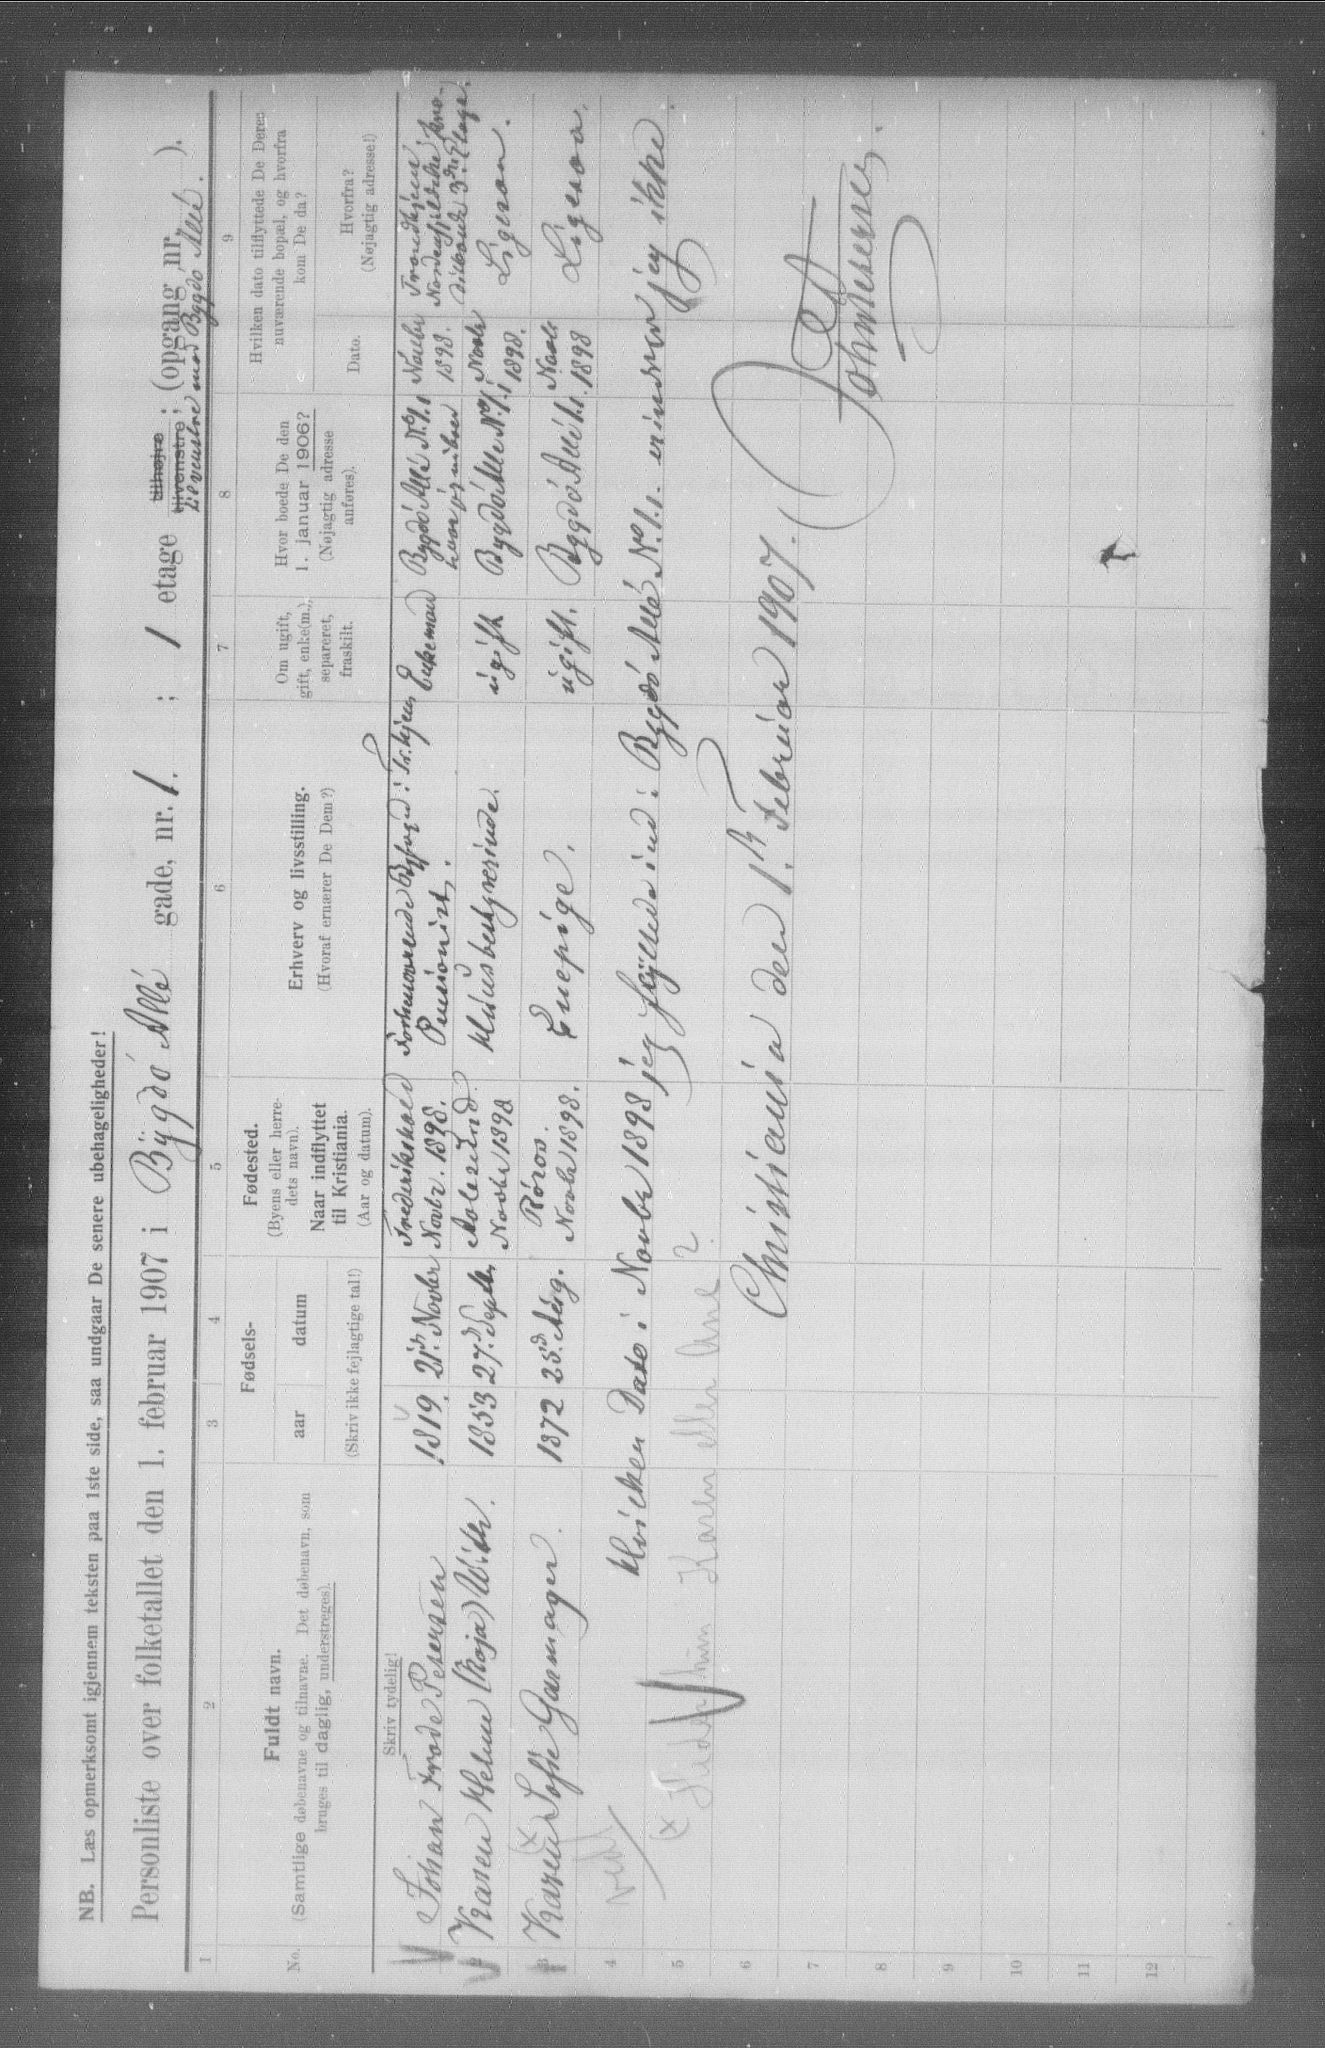 NB. Læs opmerksomt igjennem teksten paa 1ste side, saa undgaar De senere ubehageligheder!
Personliste over folketallet den 1. februar 1907 i Bygdø Allé gade, nr. 1. ; 1 etage tilhøjre tilvenstre ; (opgang nr ).
tilvenstre mod Bygdø Allé.
1 2 3 4 5 6 7 8 9
No.
Fuldt navn.
(Samtlige døbenavne og tilnavne. Det døbenavn, som
bruges til daglig, understreges).
Fødsels-
aar datum
(Skriv ikke fejlagtige tal!)
Fødested.
(Byens eller herre-
dets navn).
Naar indflyttet
til Kristiania.
(Aar og datum).
Erhverv og livsstilling.
(Hvoraf ernærer De Dem?)
Om ugift,
gift, enke(m.),
separeret,
fraskilt.
Hvor boede De den
1. januar 1906?
(Nøjagtig adresse
anføres).
Hvilken dato tilflyttede De Deres
nuværende bopæl, og hvorfra
kom De da?
Dato.
Hvorfra?
(Nøjagtig adresse!)
Skriv tydelig!
Johan Frode Petersen 1819. 21. Novbr Frederikshald Novbr. 1898. Pensionist. Enkemand Bygdø Allé No. 1. 1 Novbr 1898. Trondhjem 3die Etage.
2 Karen Helene (Kaja) With. 1853 27. Septbr. Aalesund Novbr 1898 Husbestyrerinde. ugift Bygdø Allé No. 1. 1 Novbr 1898. Ligesaa.
3 Karen (x Sofie Garmager. 1872 25. Aug. Røros. Novbr 1898. Enepige. ugift. Bygdø Allé 1.1. Novbr 1898 Ligesaa.
4 Hvilken Dato i Novbr 1898 jeg flyttede ind i Bygdø Allé No. 1.1. erindrer jeg ikke.
5 (x Heder hun Karen eller Ane?
6 Christiania den 1. Februar 1907.
7 Petersen.
8
9
10
11
12